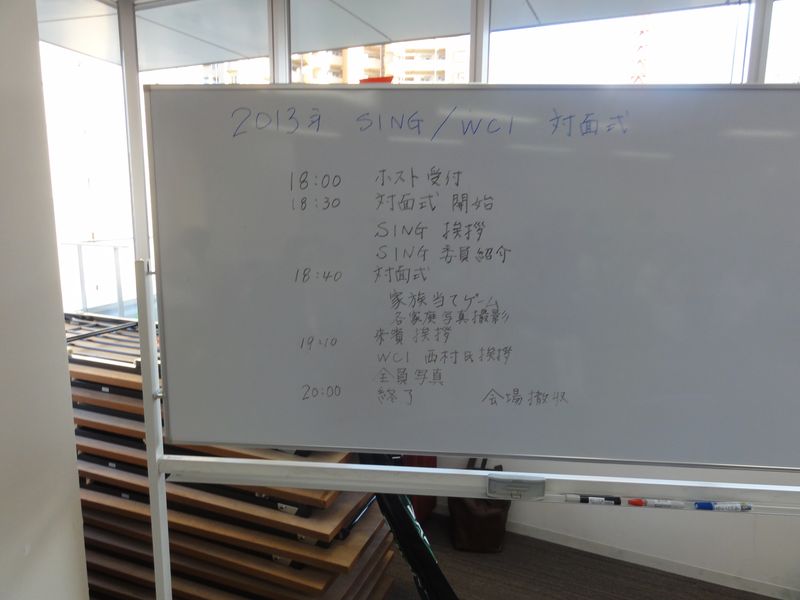 2013年 SING/WCI 対面式
18:00 ホスト受付
18:30 対面式 開始
SING 挨拶
SING 委員紹介
18:40 対面式
家族当てゲーム
各家庭写真撮影
19:10 来賓 挨拶
WCI 西村氏挨拶
全員写真
20:00 終了 会場撤収